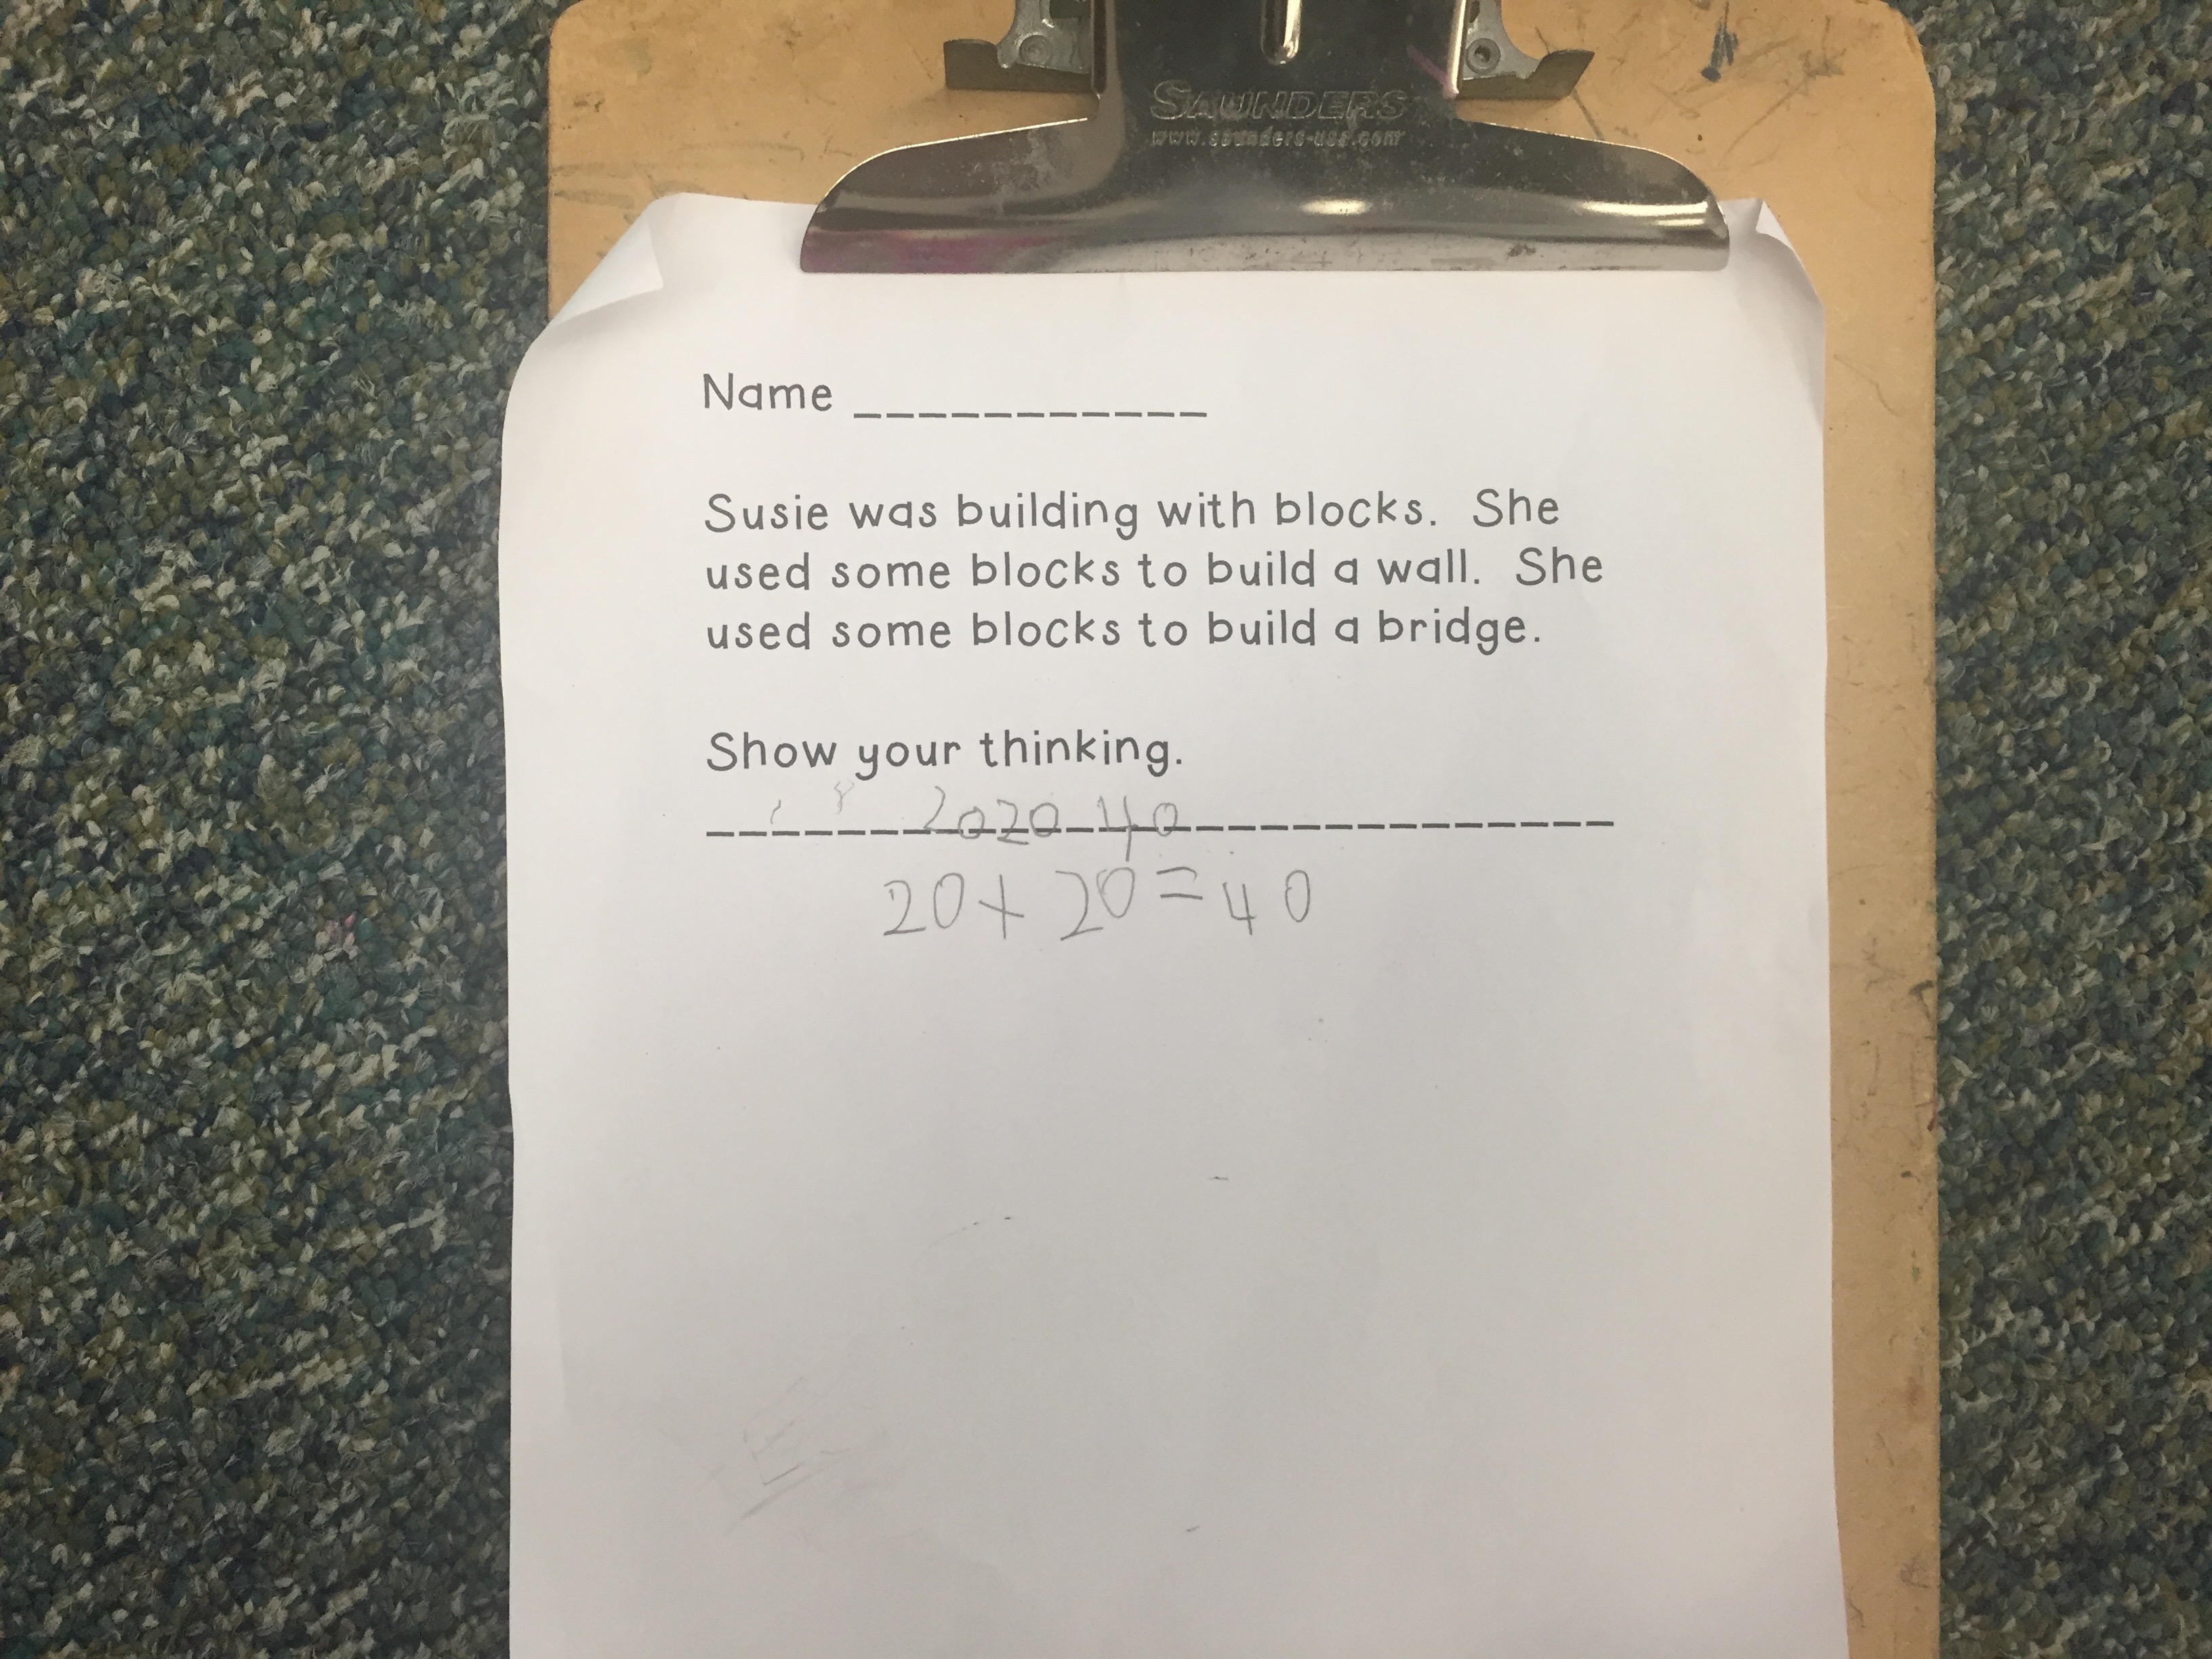 SAUNDERS
www.saunders-usa.com
Name ___________
Susie was building with blocks. She
used some blocks to build a wall. She
used some blocks to build a bridge.
Show your thinking.
2020 40
20+20=40